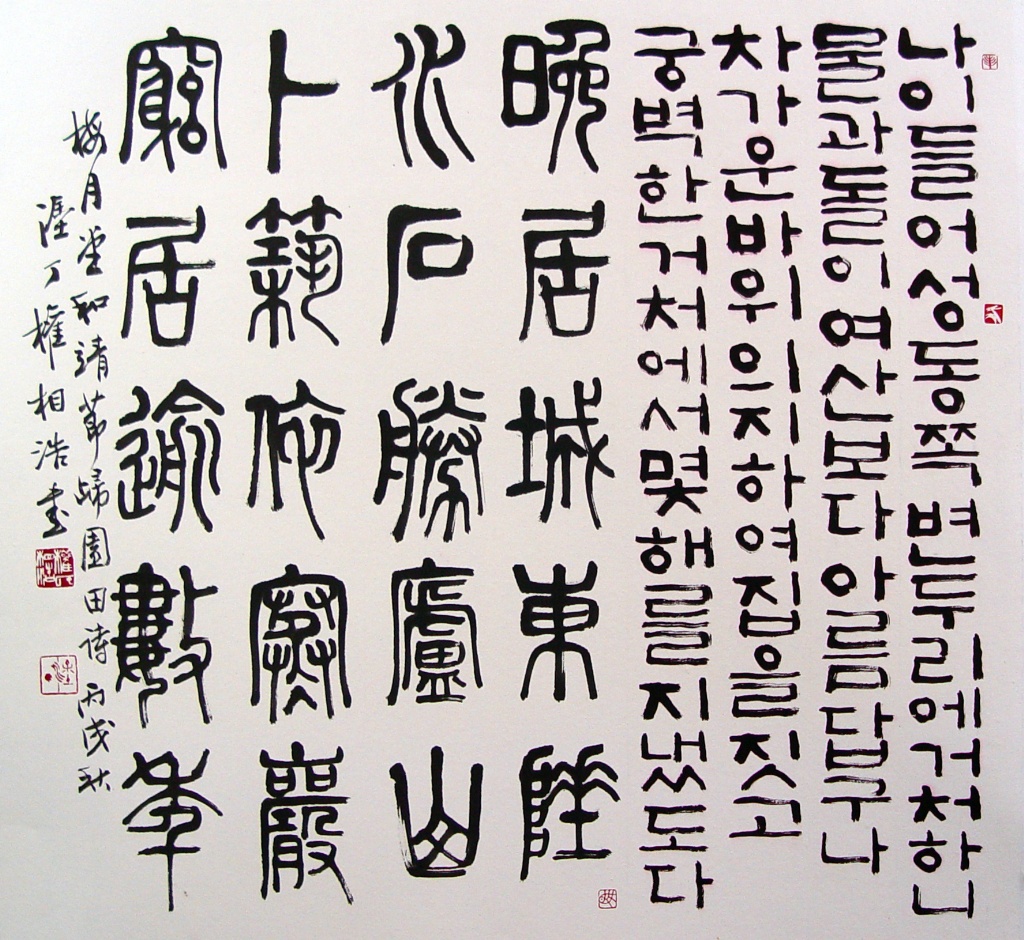 나이들어성동쪽변두리에거처하니
물과돌이여산보다아름답구나
차가운바위의지하여집을짓고
궁벽한거처에서몇해를지냈도다
晩居城東陲
水石勝廬山
卜築依寒巖
窮居逾數年
梅月堂和靖節歸園田詩丙戌秋
塗丁權相浩書